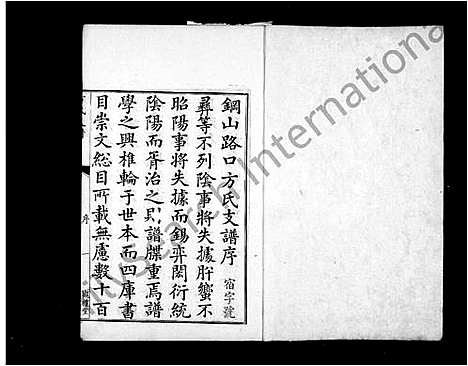 鋼山路口方氏支譜序
宿字號
彞等不列陰事將失據肸蠁不
昭陽事將失據而錫弈閎衍統
陰陽而胥治之則譜牒重焉譜
學之興椎輪于世本而四庫書
目崇文総目所載無慮數十百
序
一